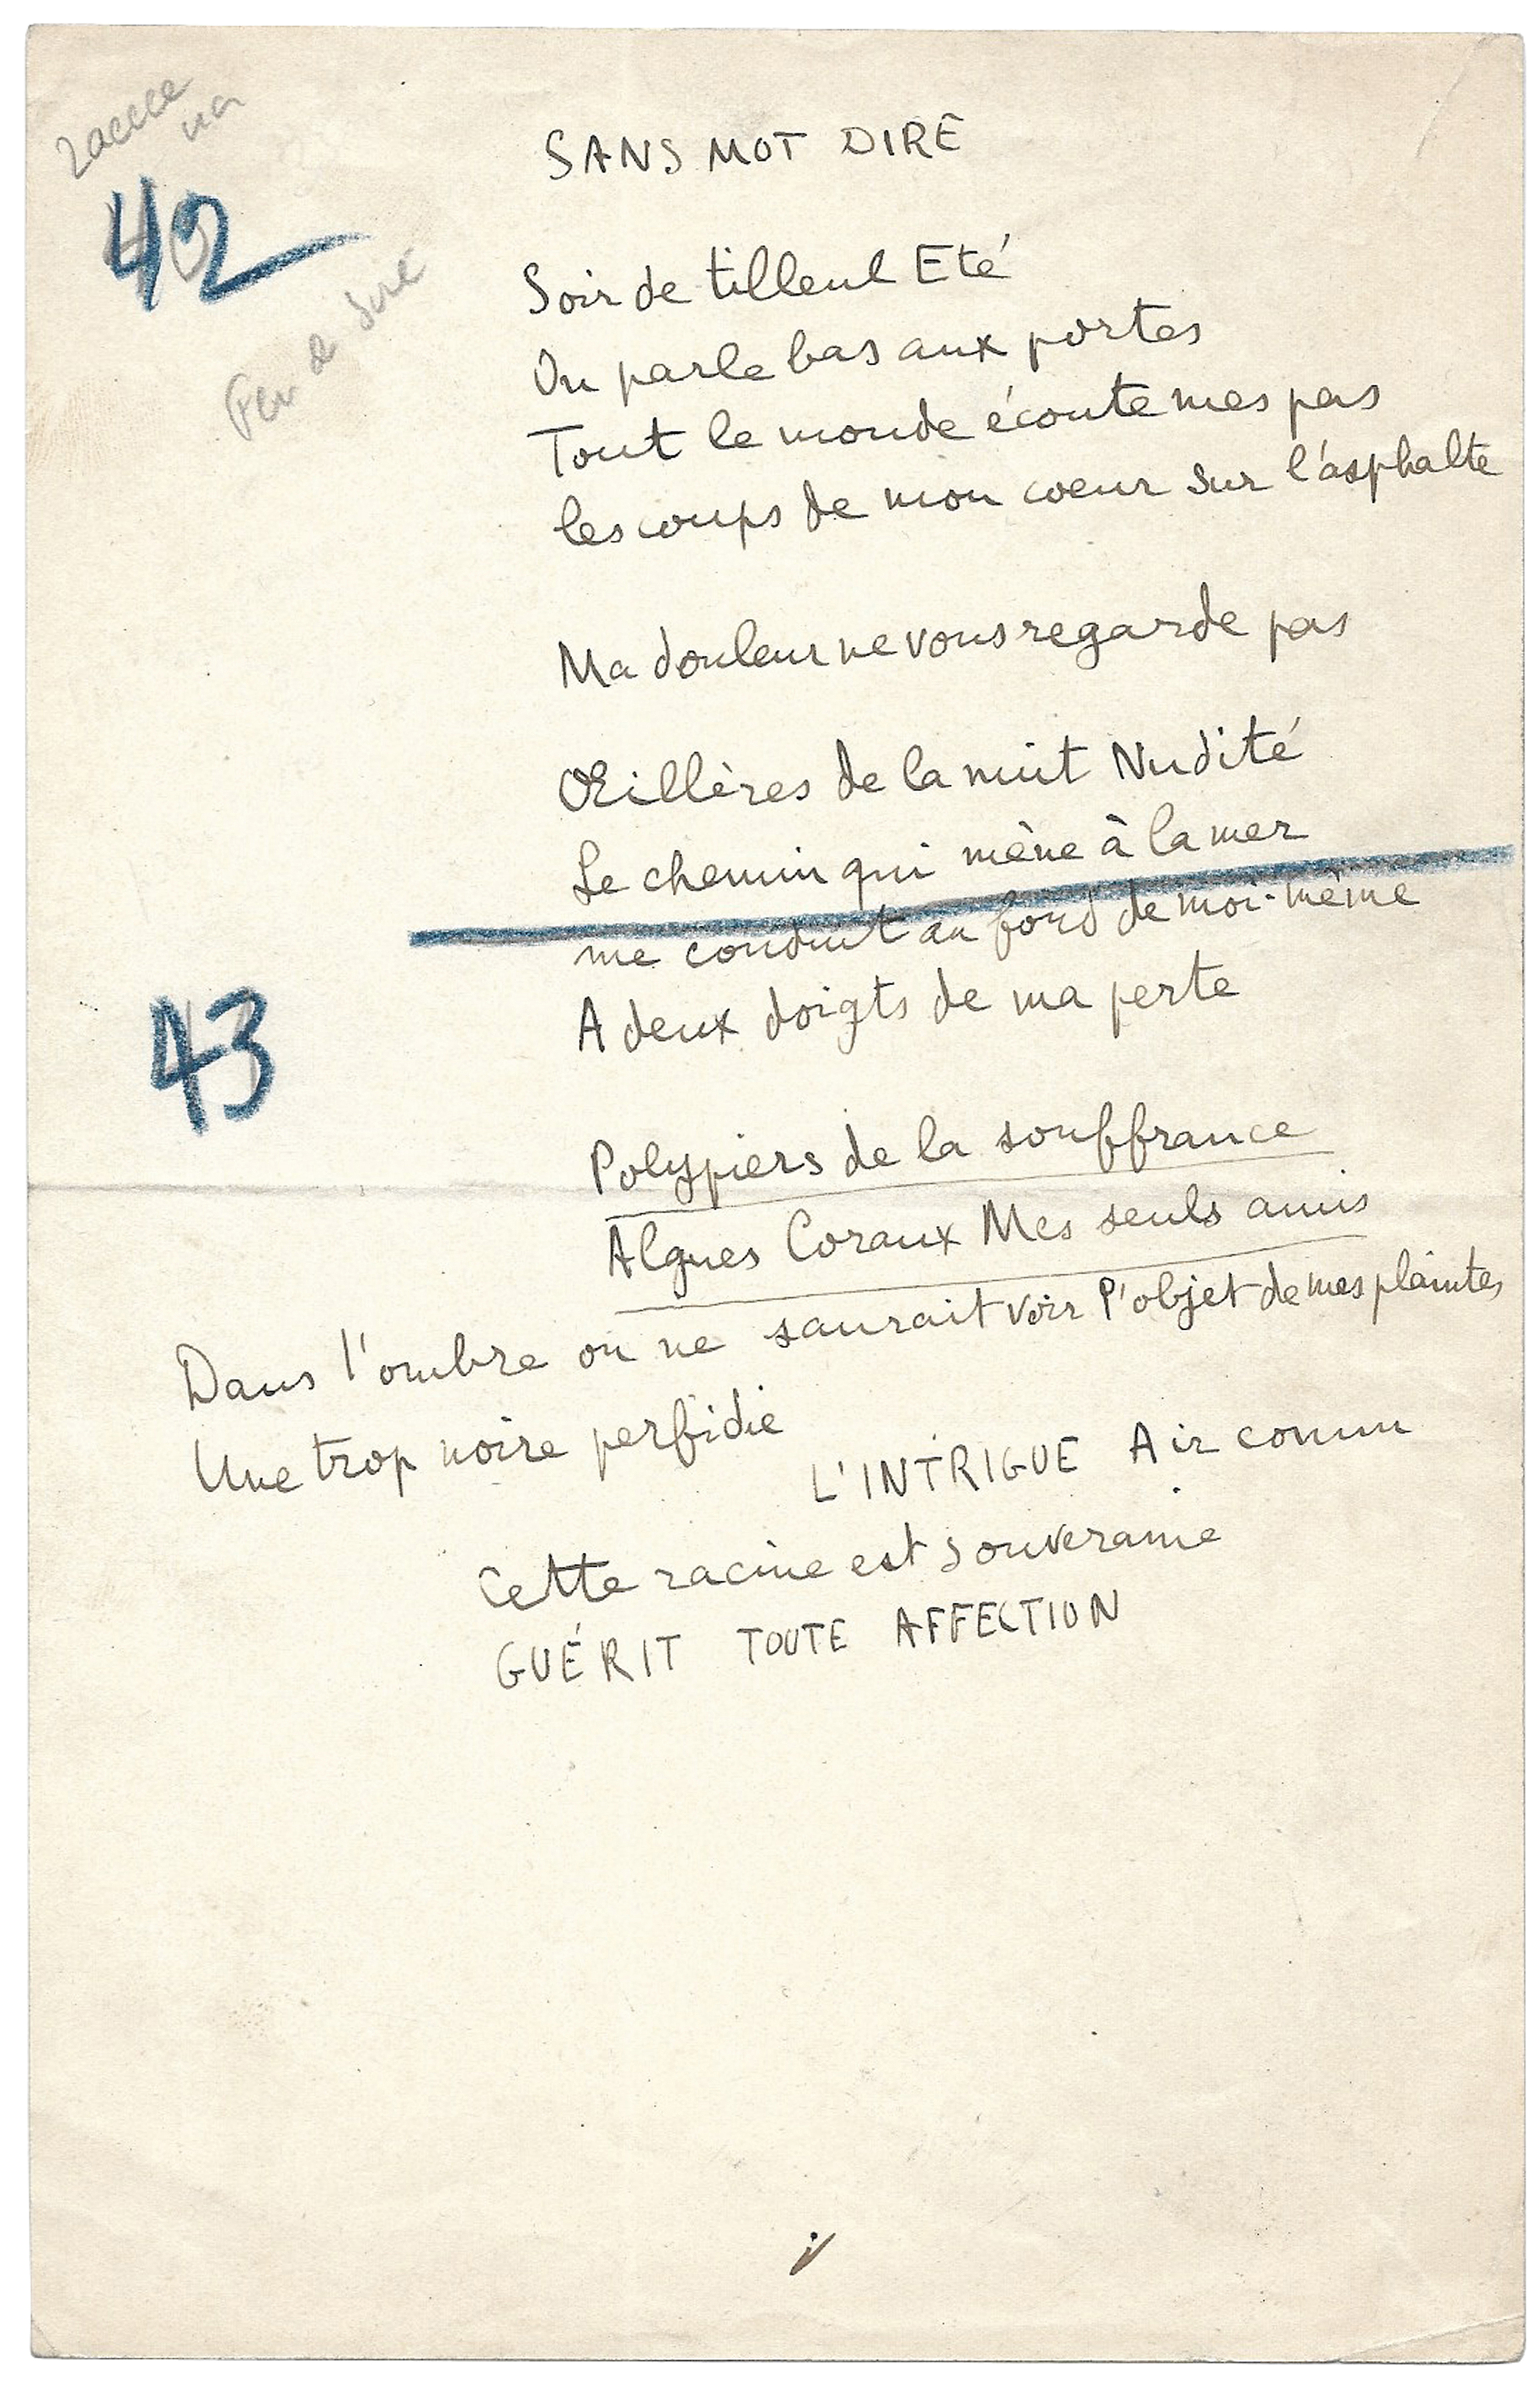 42
SANS MOT DIRE
Soir de tilleul Eté
On parle bas aux portes
Tout le monde écoute mes pas
les coups de mon coeur sur l'asphalte
Ma douleur ne vous regarde pas
Œillères de la nuit Nudité
Le chemin qui mène à la mer
me conduit au fond de moi-même
A deux doigts de ma perte
43
Polypiers de la souffrance
Algues Coraux Mes seuls amis
Dans l'ombre on ne saurait voir l'objet de mes plaintes
Une trop noire perfidie
L'INTRIGUE Air connu
Cette racine est souveraine
GUÉRIT TOUTE AFFECTION